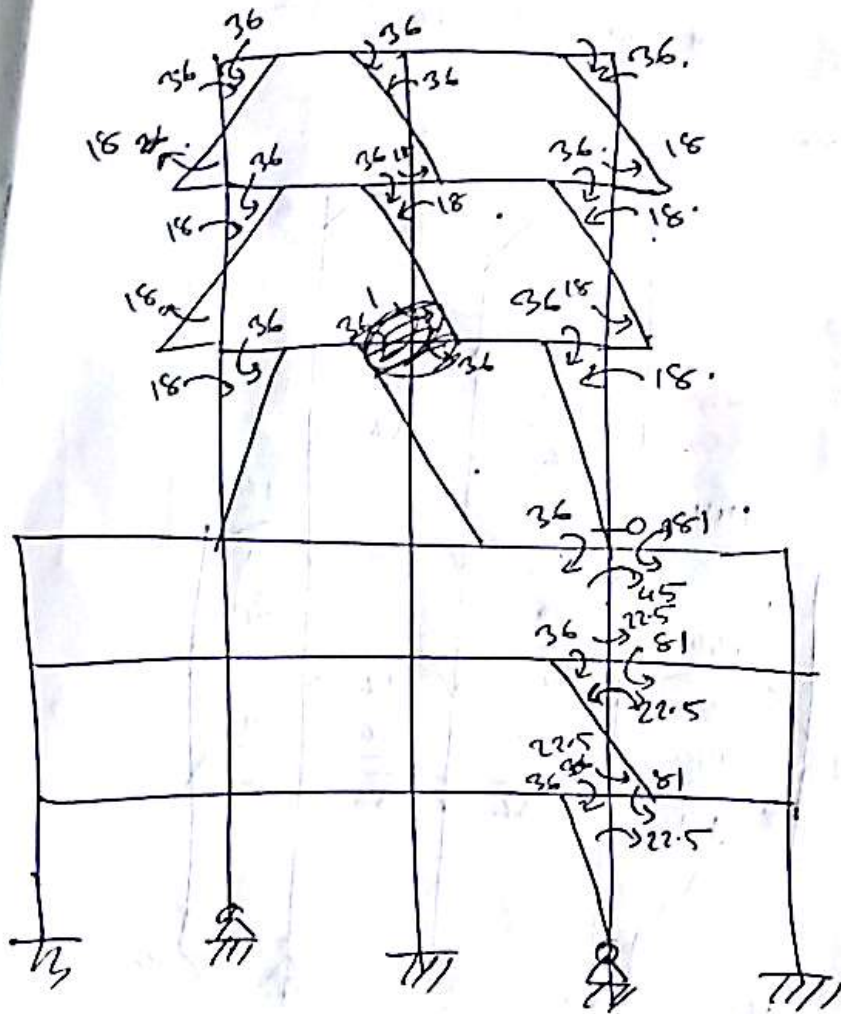 36 36
36 36 36.
18 18
36 36 18 36.
18 18 18.
18 1 18
36 36 36 36
18 18.
36 81
45
22.5
36 81
22.5
22.5
36 36 81
22.5